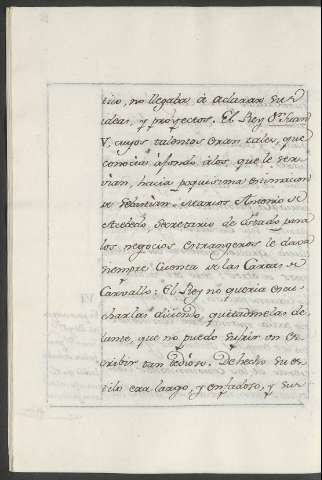 tilo, no llegaba à aclarar sus
ideas, y proyectos. El Rey Dn. Juan
V. cuyos talentos eran tales, que
conocia à fondo à los que le ser-
vian, hacia poquisima estimacion
de Marcos Antonio de
Acebedo, Secretario de Estado para
los negocios estrangeros le daba
siempre cuenta de las Cartas de
Carvallo: El Rey no queria escu-
charlas diciendo, quitadmelas de-
lante, que no puedo sufrir un es-
cribir tan tedioso. De hecho su es-
tilo era largo, y enfadoso, y sus